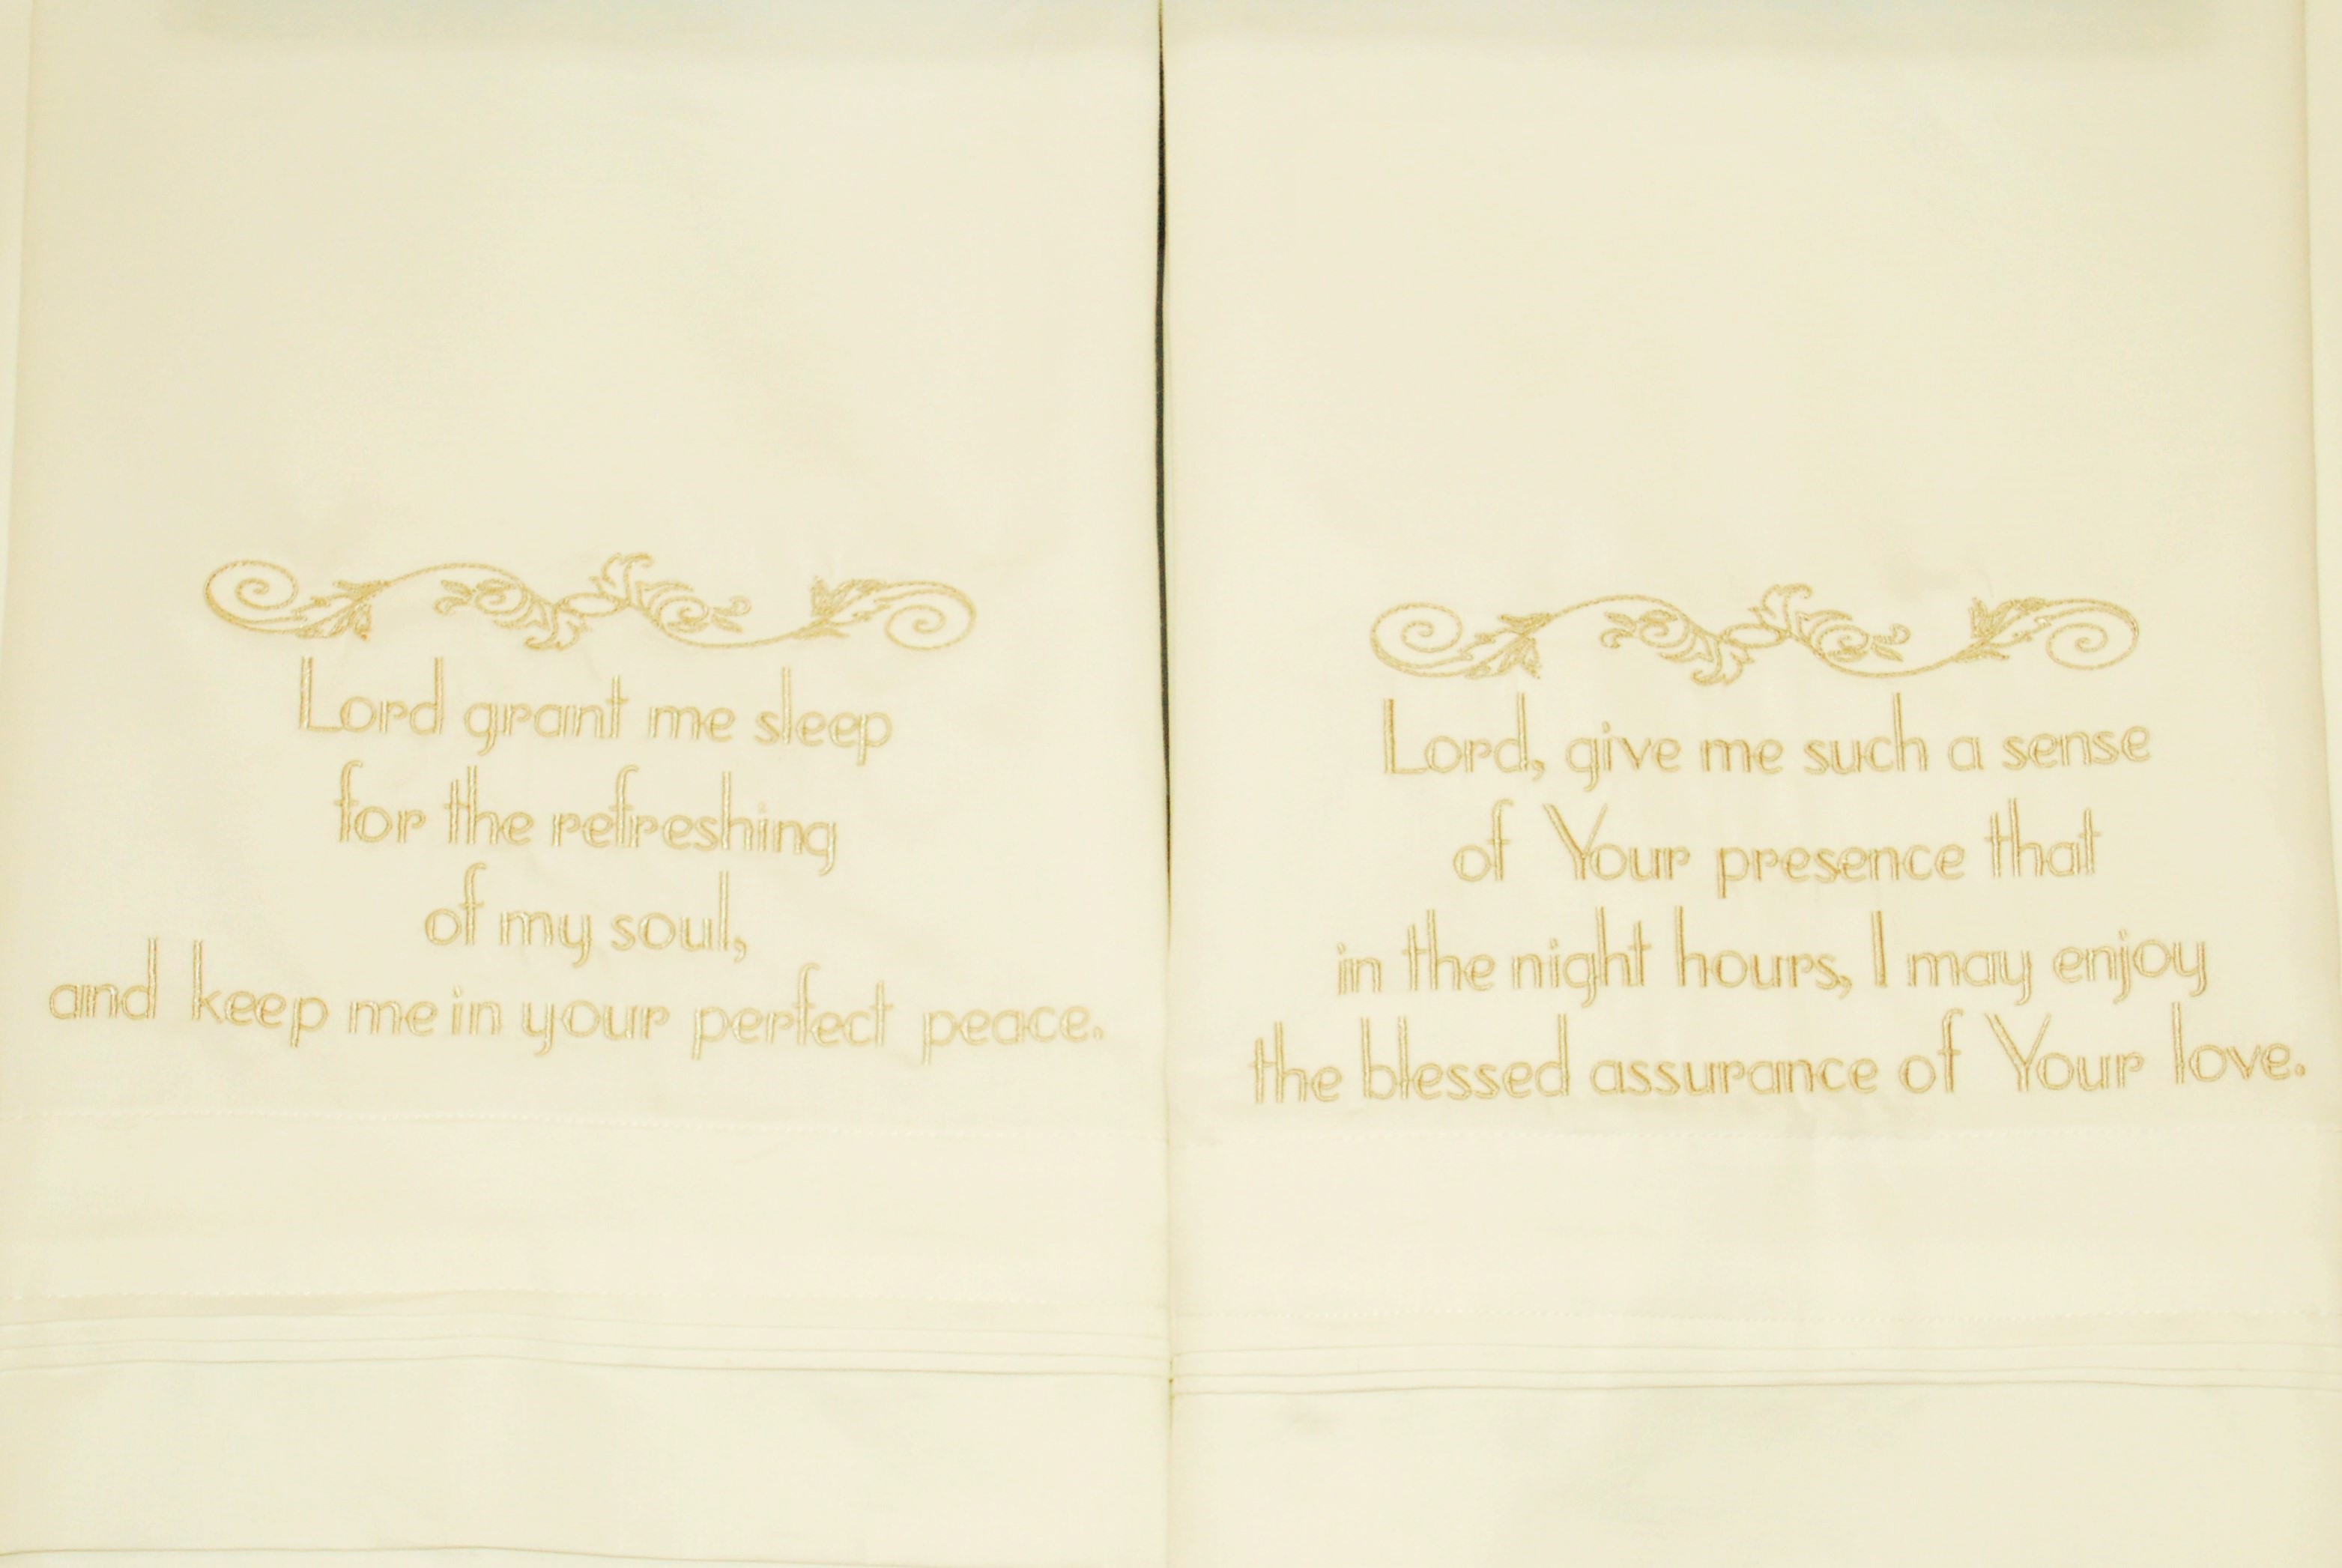 Lord grant me sleep
for the refreshing
of my soul,
and keep me in your perfect peace.
Lord, give me such a sense
of Your presence that
in the night hours, I may enjoy
the blessed assurance of Your love.